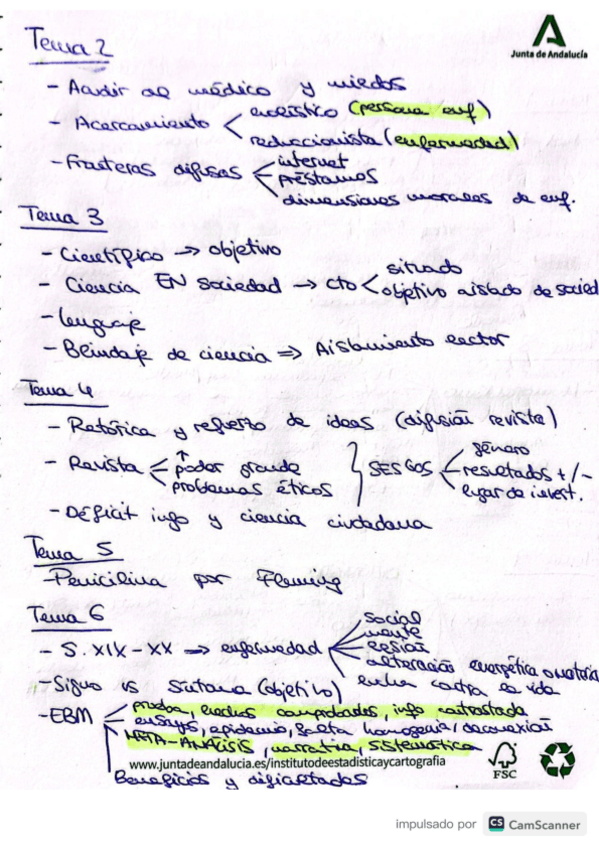 Tema 2
Junta de Andalucía
- Acudir al médico y miedos
- Acercamiento < holístico (persona enf)
reduccionista (enfermedad)
- Fronteras difusas < internet
préstamos
dimensiones morales de enf.
Tema 3
- Científico → objetivo
- Ciencia EN sociedad → cto < situado
objetivo aislado de socied
- lenguaje
- Blindaje de ciencia ⇒ Aislamiento lector
Tema 4
- Retórica y refuerzo de ideas (difusión revista)
- Revista < ↑ poder grande
problemas éticos
} SESGOS < género
resultados +/-
lugar de invest.
- Déficit info y ciencia ciudadana
Tema 5
- Penicilina por Fleming
Tema 6
- S. XIX - XX → enfermedad < social
mente
lesión
alteración energética o materia
lucha contra la vida
- Signo vs Síntoma (objetivo)
- EBM < prueba, hechos comprobados, info contrastada
ensayo, epidemio, falta homogenia/deconexión
META-ANÁLISIS, narrativa, sistemática
Beneficios y dificultades
www.juntadeandalucia.es/institutodeestadisticaycartografia
FSC
impulsado por CS CamScanner